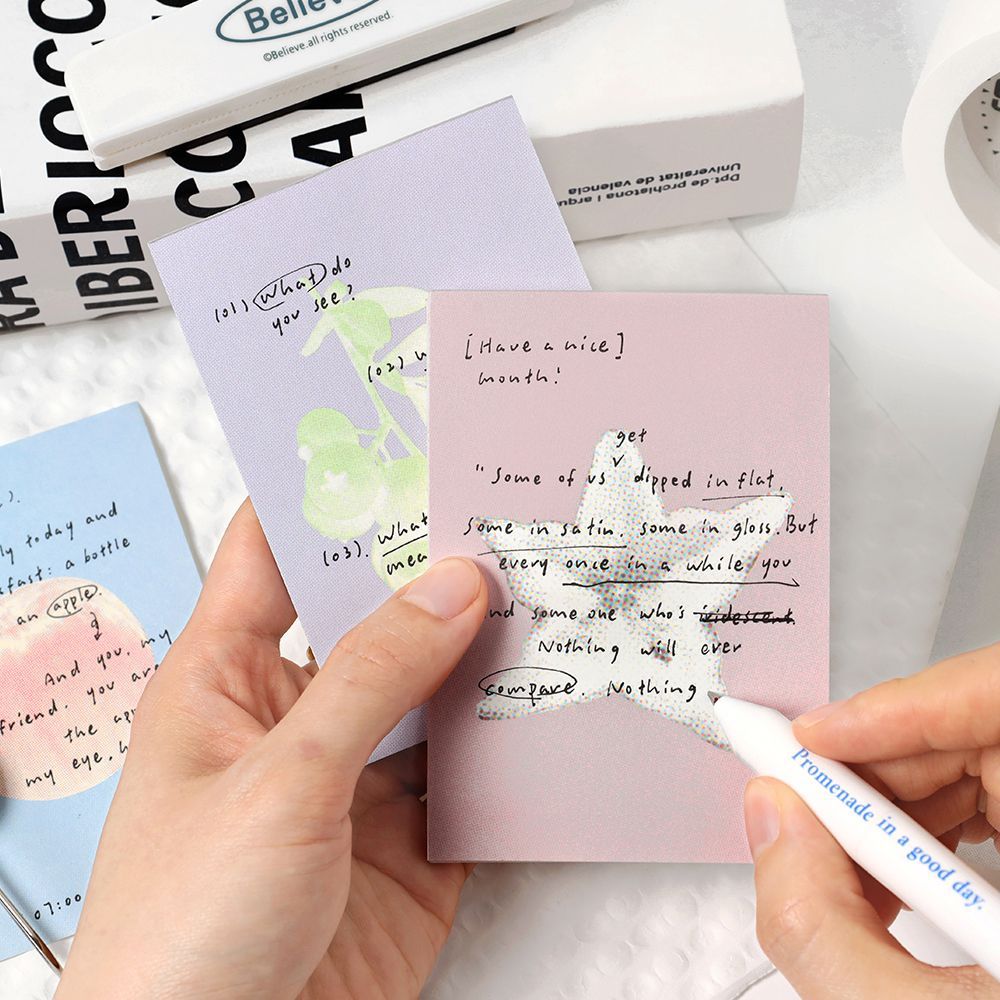 Believe
©Believe.all rights reserved.
Dpt.de prohistona i arqu
Universitat de valencia
(01) What do
you see?
(02)
(03). What
mea
[Have a nice]
month!
get
"Some of us dipped in flat,
Some in satin, some in gloss. But
every once in a while you
nd some one who's iridescent
Nothing will ever
compare. Nothing
Promenade in a good day.
ly today and
fast: a bottle
an apple.
And you, my
friend. you are
the
my eye.
07:00